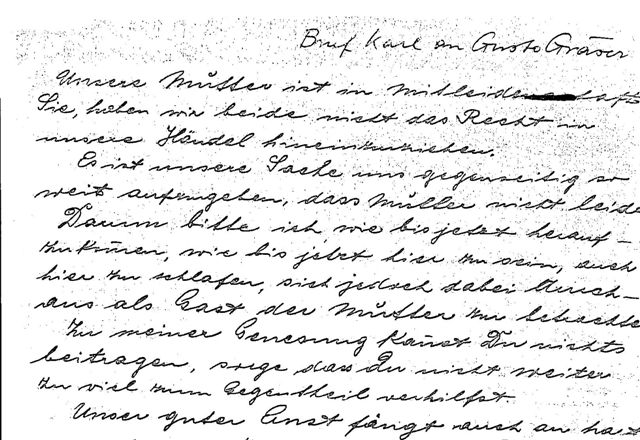 Brief Karl an Gusto Gräser
Unsere Mutter ist in Mitleiden
Sie, haben wir beide nicht das Recht in
unsere Händel hineinzuziehen.
Es ist unsere Sache uns gegenseitig so
weit aufzugeben, dass Mutter nicht leide
Darum bitte ich, wie bis jetzt herauf-
zukommen, wie bis jetzt hier zu sein, auch
hier zu schlafen, sich jedoch dabei durch-
aus als Gast der Mutter zu betrachte
Zu meiner Genesung kannst Du nichts
beitragen, sorge dass Du nicht weiter
zu viel zum Gegentheil verhilfst.
Unser guter Ernst fängt auch an